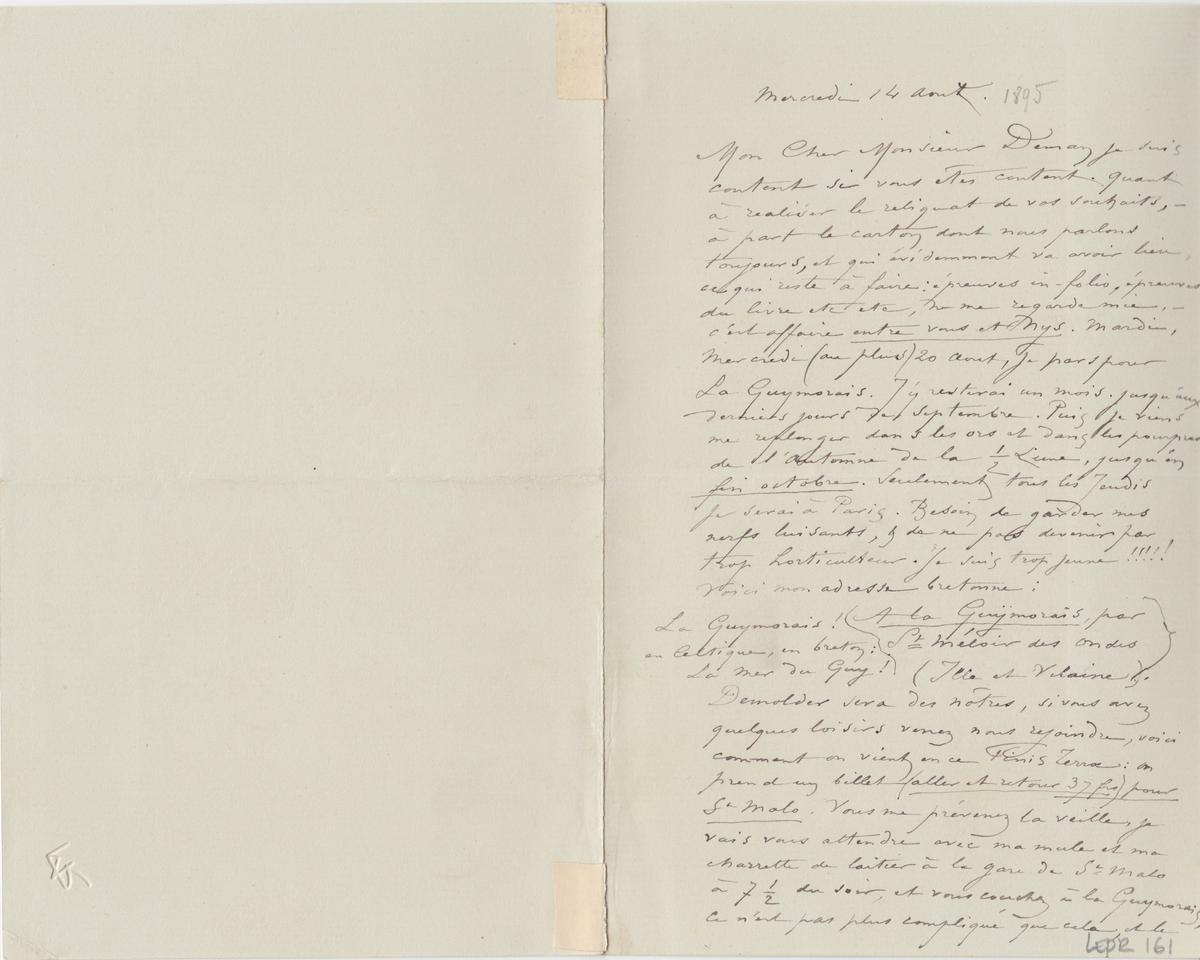 Mercredi 14 Aout. 1895
Mon Cher Monsieur Deman je suis
content si vous etes content. Quant
à realiser le reliquat de vos souhaits, –
à part le carton dont nous parlons
toujours, et qui évidemment va avoir lieu,
ce qui reste à faire : épreuves in-folio, épreuves
du livre etc etc, ne me regarde mie, –
c'est affaire entre vous et Nys. Mardi,
Mercredi (au plus) 20 aout, je pars pour
La Guymorais. J'y resterai un mois. jusqu'aux
derniers jours de Septembre. Puis je viens
me replonger dans les ors et dans les pourpres
de l'Automne de la ½ Lune, jusqu'en
fin octobre. Seulement tous les Jeudis
je serai à Paris. Besoin de garder mes
nerfs luisants, & de ne pas devenir par
trop horticulteur. Je suis trop jeune !!!!!
Voici mon adresse bretonne :
La Guymorais !
en Celtique, en breton :
La mer du Guy !
(A la Guymorais, par
St Méloir des ondes
(Ille et Vilaine).
Demolder sera des nôtres, si vous avez
quelques loisirs venez nous rejoindre, voici
comment on vient en ce Finis Terrae : on
prend un billet (aller et retour 37 frs) pour
St Malo. Vous me prévenez la veille, je
vais vous attendre avec ma mule et ma
charrette de laitier à la gare de St Malo
à 7 ½ du soir, et vous couchez à la Guymorais,
ce n'est pas plus compliqué que cela, et le
LEpR 161